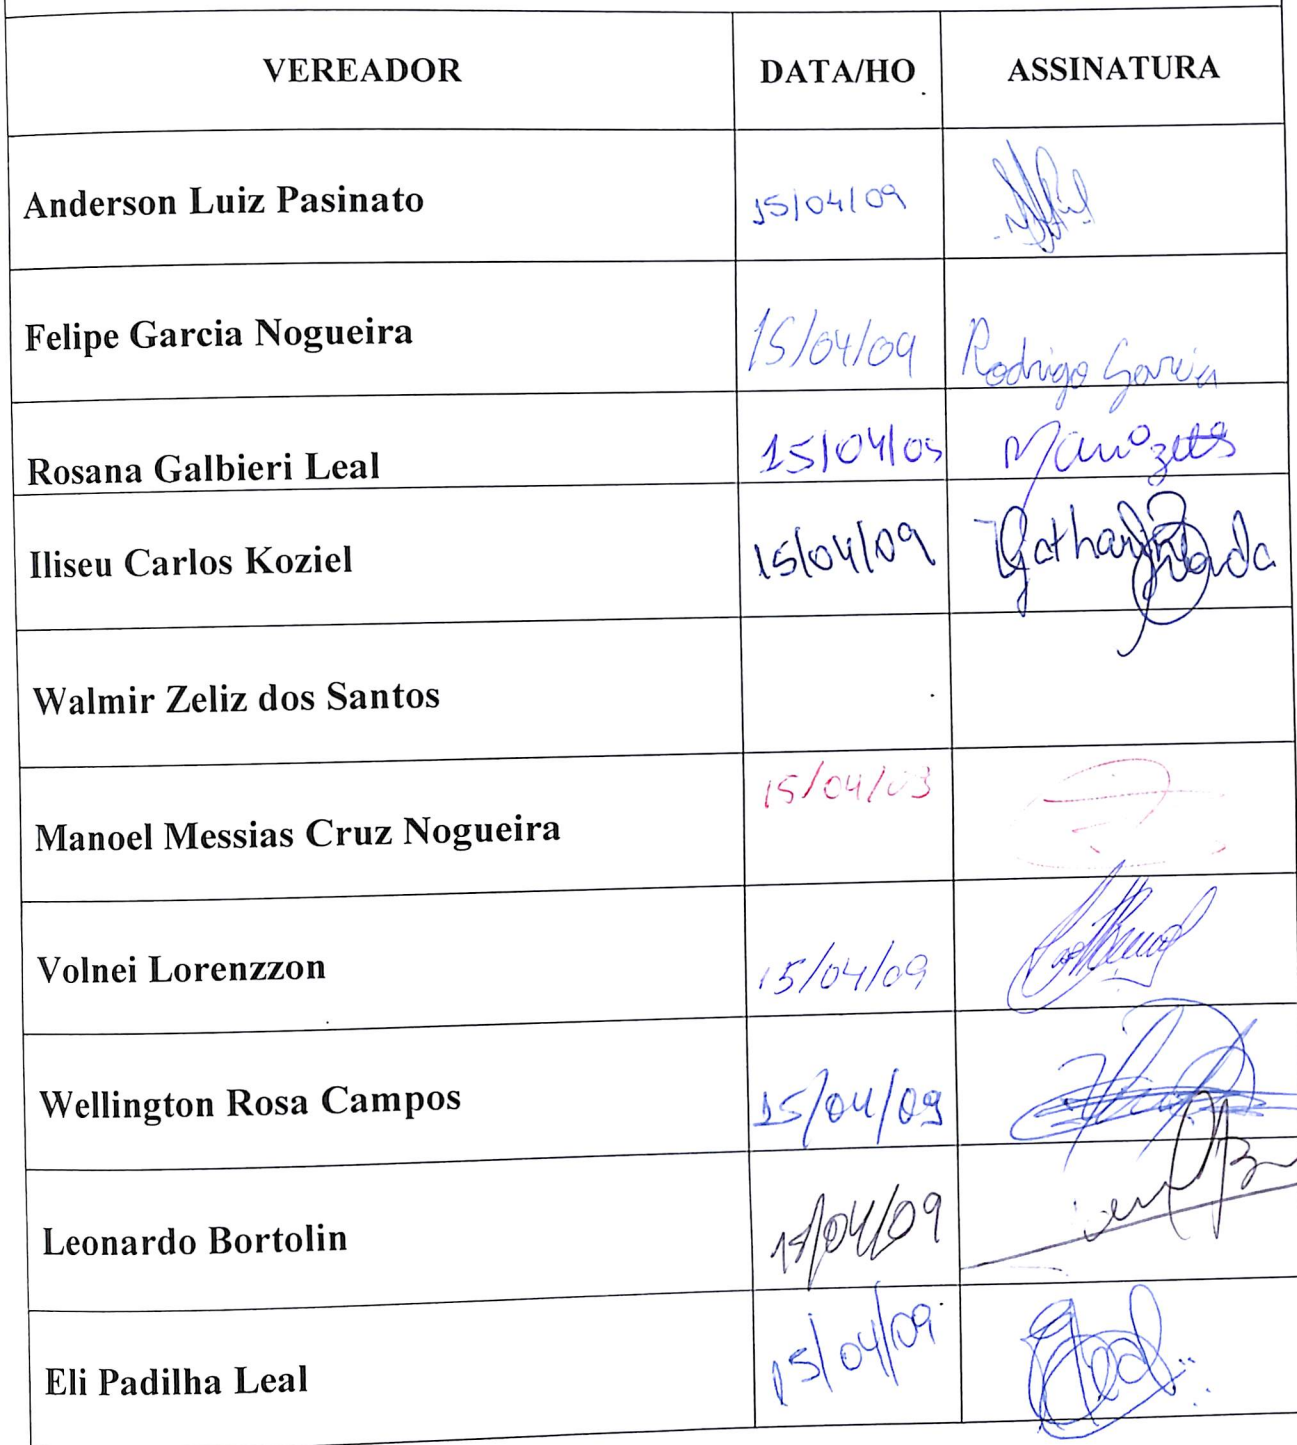 VEREADOR DATA/HO ASSINATURA
Anderson Luiz Pasinato 15/04/09
Felipe Garcia Nogueira 15/04/09 Rodrigo Garcia
Rosana Galbieri Leal 15/04/09
Iliseu Carlos Koziel 15/04/09
Walmir Zeliz dos Santos
Manoel Messias Cruz Nogueira 15/04/03
Volnei Lorenzzon 15/04/09
Wellington Rosa Campos 15/04/09
Leonardo Bortolin 15/04/09
Eli Padilha Leal 15/04/09